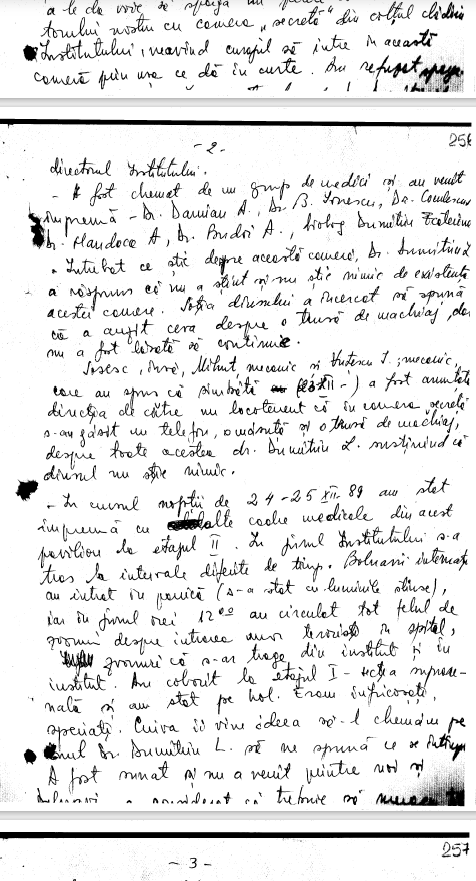 a le da voie să
torului nostru cu camera „secretă” din colțul clădirii
Institutului, neavînd curajul să intre în această
cameră prin ușa ce dă în curte. Au refuzat
256
- 2 -
directorul Institutului.
- A fost chemat de un grup de medici și au venit
împreună - Dr. Damian A., Dr. B. Ionescu, Dr.
Dr. Mandoca A, Dr. Budoi A., biolog Dumitriu Ecaterina
- Întrebat ce știe despre această cameră, Dr. Dumitriu L
a răspuns că nu a știut și nu știe nimic de existența
acestei camere. Soția dînsului a încercat să spună
că a auzit ceva despre o trusă de machiaj, dar
nu a fost lăsată să continue.
Iosesc, însă, Mihuț, mecanic și I. mecanic,
care au spus că sîmbătă a fost anunțată
direcția de către un locotenent că în camera „secretă”
s-au găsit un telefon, o măsuță și o trusă de machiaj,
despre toate acestea dr. Dumitriu L. susținînd că
dînsul nu știe nimic.
- În cursul nopții de 24-25 XII. 89 am stat
împreună cu alte cadre medicale din acest
pavilion la etajul II. În jurul Institutului s-a
tras la intervale diferite de timp. Bolnavii internați
au intrat în panică (s-a stat cu luminile stinse),
iar în jurul orei 12⁰⁰ au circulat tot felul de
zvonuri despre intrarea unor teroriști în spital,
zvonuri că s-ar trage din institut și în
institut. Am coborît la etajul I - secția suprare-
nală și am stat pe hol. Eram înfricoșați,
speriați. Cuiva îi vine ideea să-l chemăm pe
Dr. Dumitriu L. să ne spună ce se întîmplă
A fost sunat și nu a venit printre noi și
a considerat că trebuie să
257
- 3 -